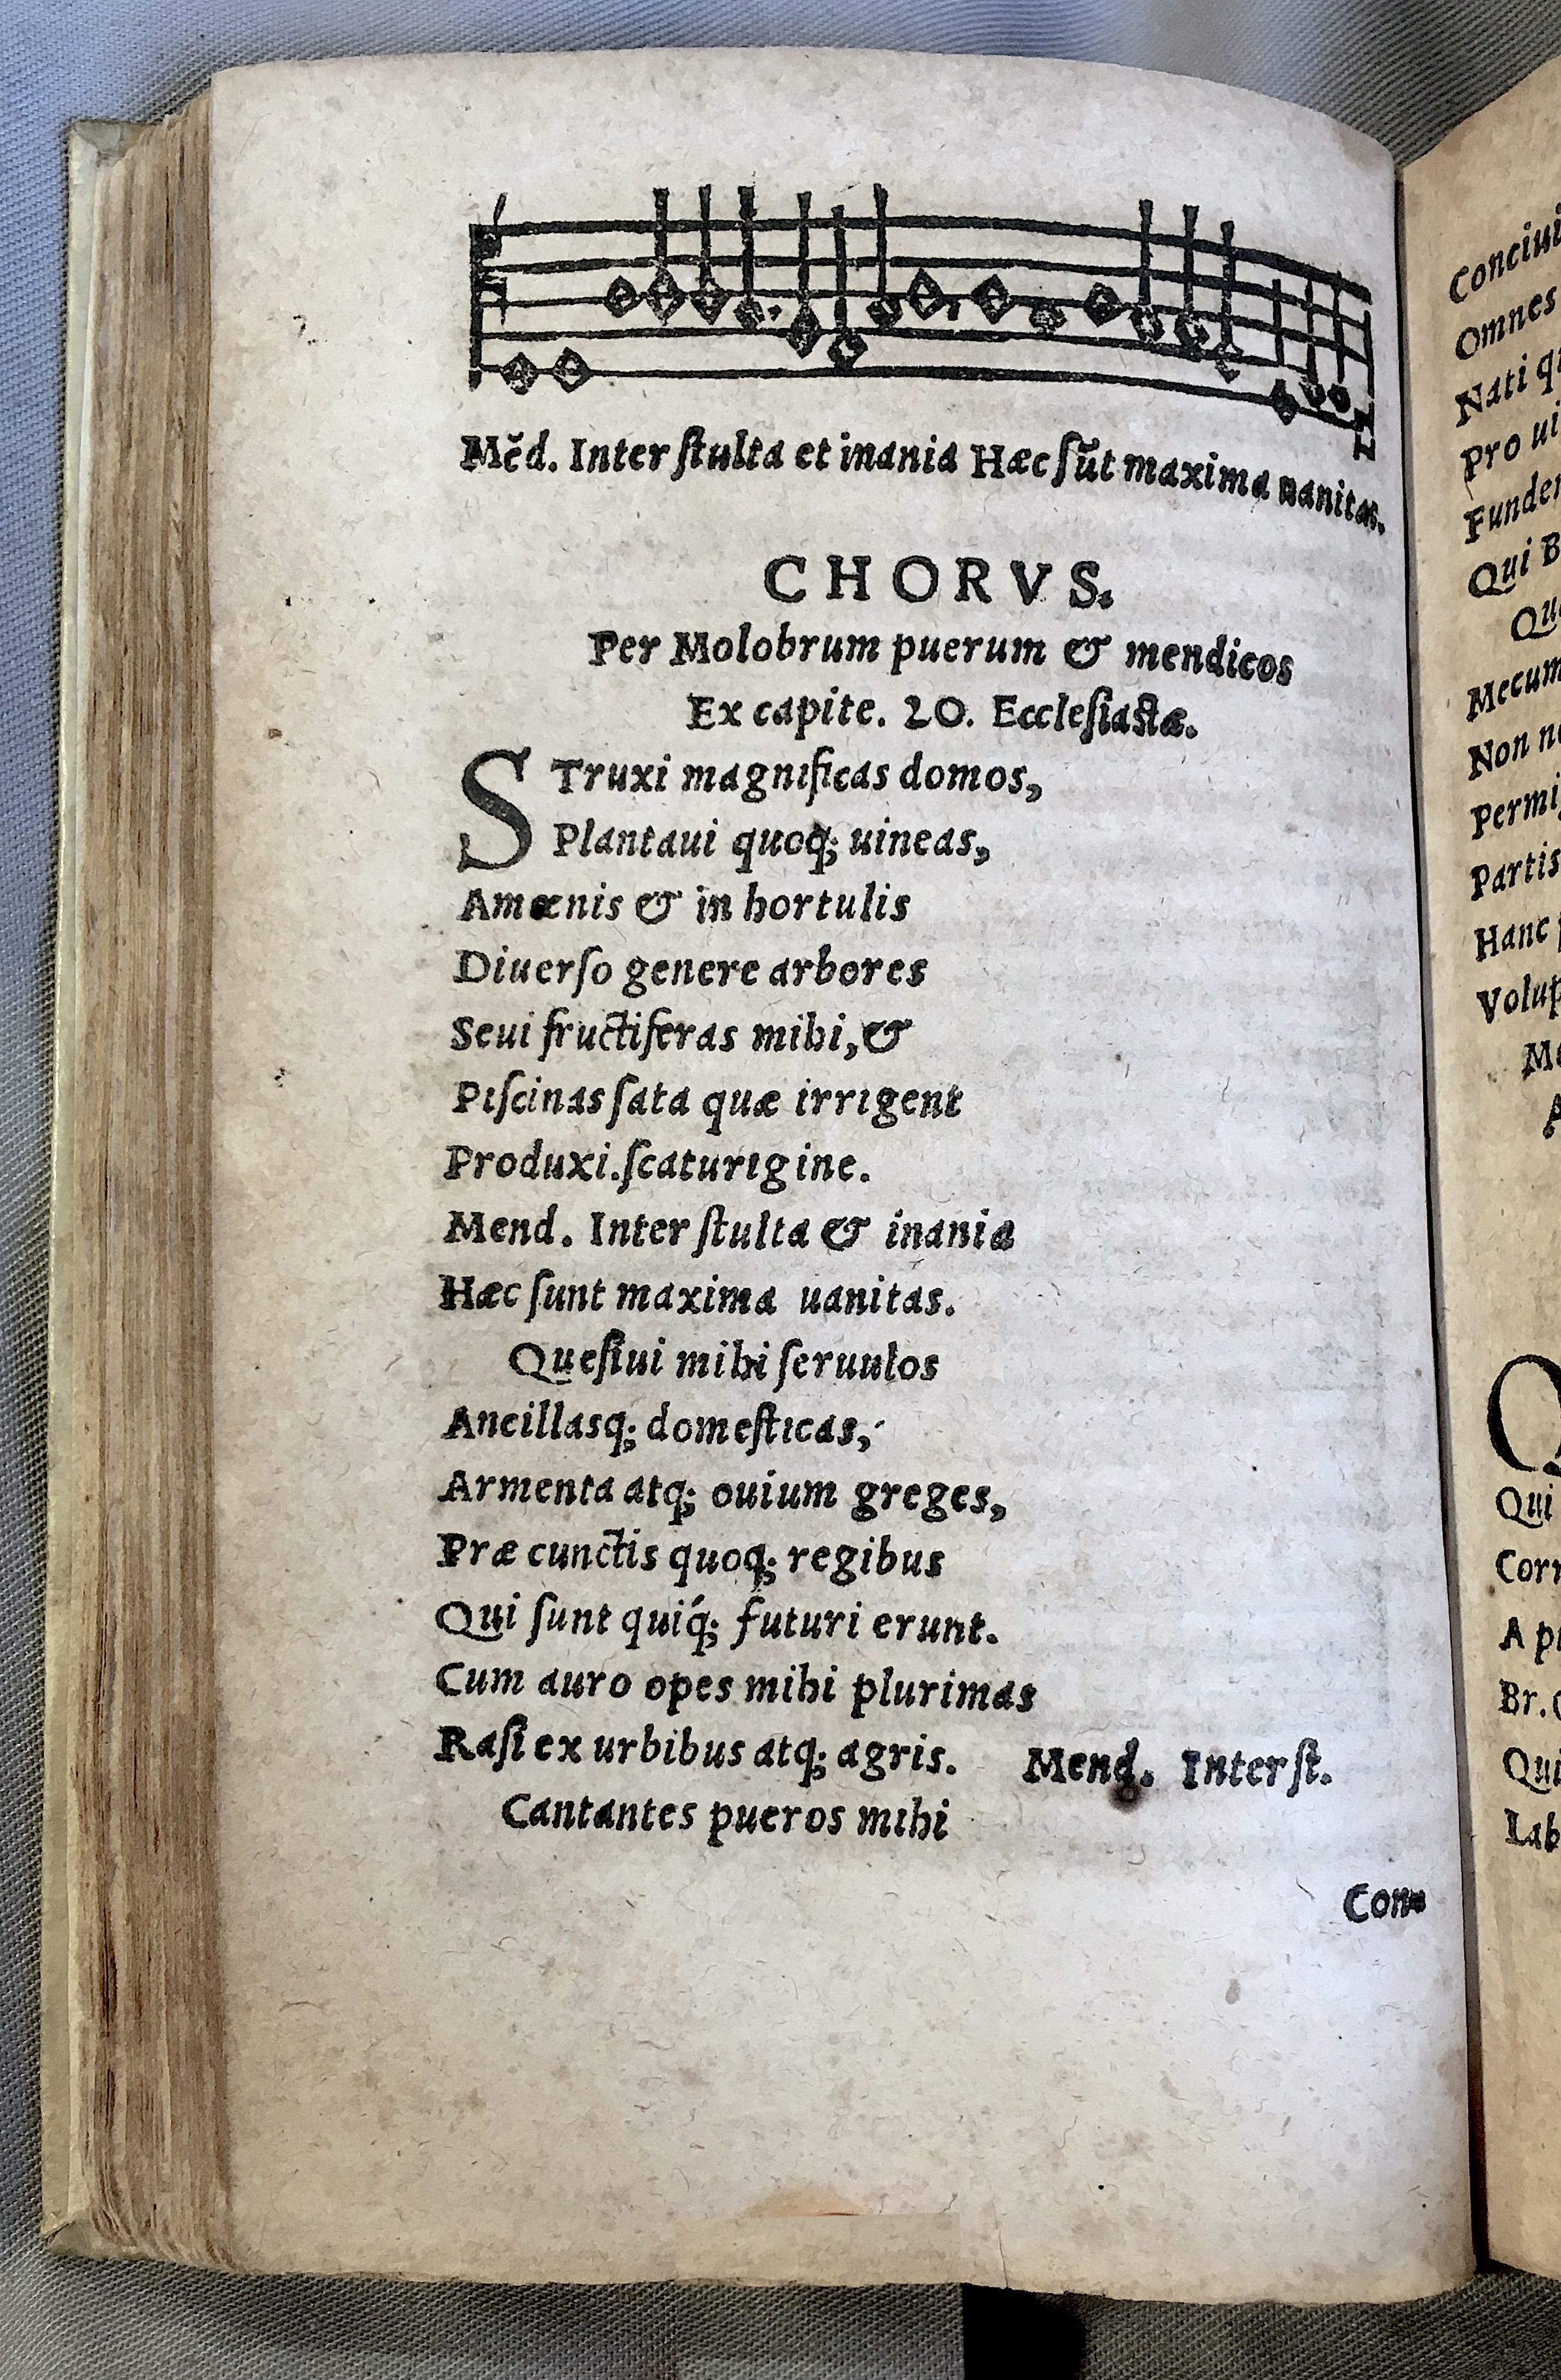 Mĕd. Inter ſtulta et inania Hæc ſŭt maxima uanitas.
CHORVS.
Per Molobrum puerum & mendicos
Ex capite. 20. Eccleſiaſtæ.
STruxi magnificas domos,
Plantaui quoq; uineas,
Amœnis & in hortulis
Diuerſo genere arbores
Seui fructiferas mihi, &
Piſcinas ſata quæ irrigent
Produxi.ſcaturigine.
Mend. Inter ſtulta & inania
Hæc ſunt maxima uanitas.
Queſiui mihi ſeruulos
Ancillasq; domeſticas,
Armenta atq; ouium greges,
Præ cunctis quoq; regibus
Qui ſunt quiq́; futuri erunt.
Cum auro opes mihi plurimas
Raſi ex urbibus atq; agris. Mend. Inter ſt.
Cantantes pueros mihi
Con-
Omnes
Nati
Pro
Qui B
Mecum
Non
Partis
Hanc
Q
Qui
A
Br.
Qui
Lab